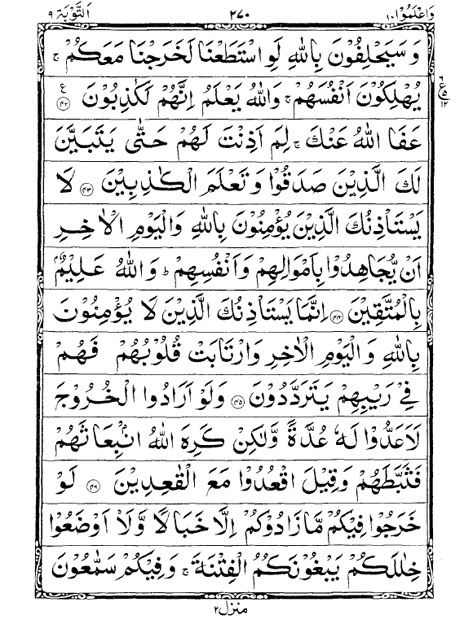 وَاعْلَمُوْۤا ١٠ ٢٧٠ اَلتَّوْبَة ٩
وَسَيَحْلِفُوْنَ بِاللّٰهِ لَوِ اسْتَطَعْنَا لَخَرَجْنَا مَعَكُمْ ۚ
يُهْلِكُوْنَ اَنْفُسَهُمْ ۚ وَاللّٰهُ يَعْلَمُ اِنَّهُمْ لَكٰذِبُوْنَ ﴿٤٢﴾ ع
عَفَا اللّٰهُ عَنْكَ ۚ لِمَ اَذِنْتَ لَهُمْ حَتّٰى يَتَبَيَّنَ
لَكَ الَّذِيْنَ صَدَقُوْا وَتَعْلَمَ الْكٰذِبِيْنَ ﴿٤٣﴾ لَا
يَسْتَاْذِنُكَ الَّذِيْنَ يُؤْمِنُوْنَ بِاللّٰهِ وَالْيَوْمِ الْاٰخِرِ
اَنْ يُّجَاهِدُوْا بِاَمْوَالِهِمْ وَاَنْفُسِهِمْ ؕ وَاللّٰهُ عَلِيْمٌۢ
بِالْمُتَّقِيْنَ ﴿٤٤﴾ اِنَّمَا يَسْتَاْذِنُكَ الَّذِيْنَ لَا يُؤْمِنُوْنَ
بِاللّٰهِ وَالْيَوْمِ الْاٰخِرِ وَارْتَابَتْ قُلُوْبُهُمْ فَهُمْ
فِيْ رَيْبِهِمْ يَتَرَدَّدُوْنَ ﴿٤٥﴾ وَلَوْ اَرَادُوا الْخُرُوْجَ
لَاَعَدُّوْا لَهٗ عُدَّةً وَّلٰكِنْ كَرِهَ اللّٰهُ انْۢبِعَاثَهُمْ
فَثَبَّطَهُمْ وَقِيْلَ اقْعُدُوْا مَعَ الْقٰعِدِيْنَ ﴿٤٦﴾ لَوْ
خَرَجُوْا فِيْكُمْ مَّا زَادُوْكُمْ اِلَّا خَبَالًا وَّلَا۟اَوْضَعُوْا
خِلٰلَكُمْ يَبْغُوْنَكُمُ الْفِتْنَةَ ۚ وَفِيْكُمْ سَمّٰعُوْنَ
منزل ٢